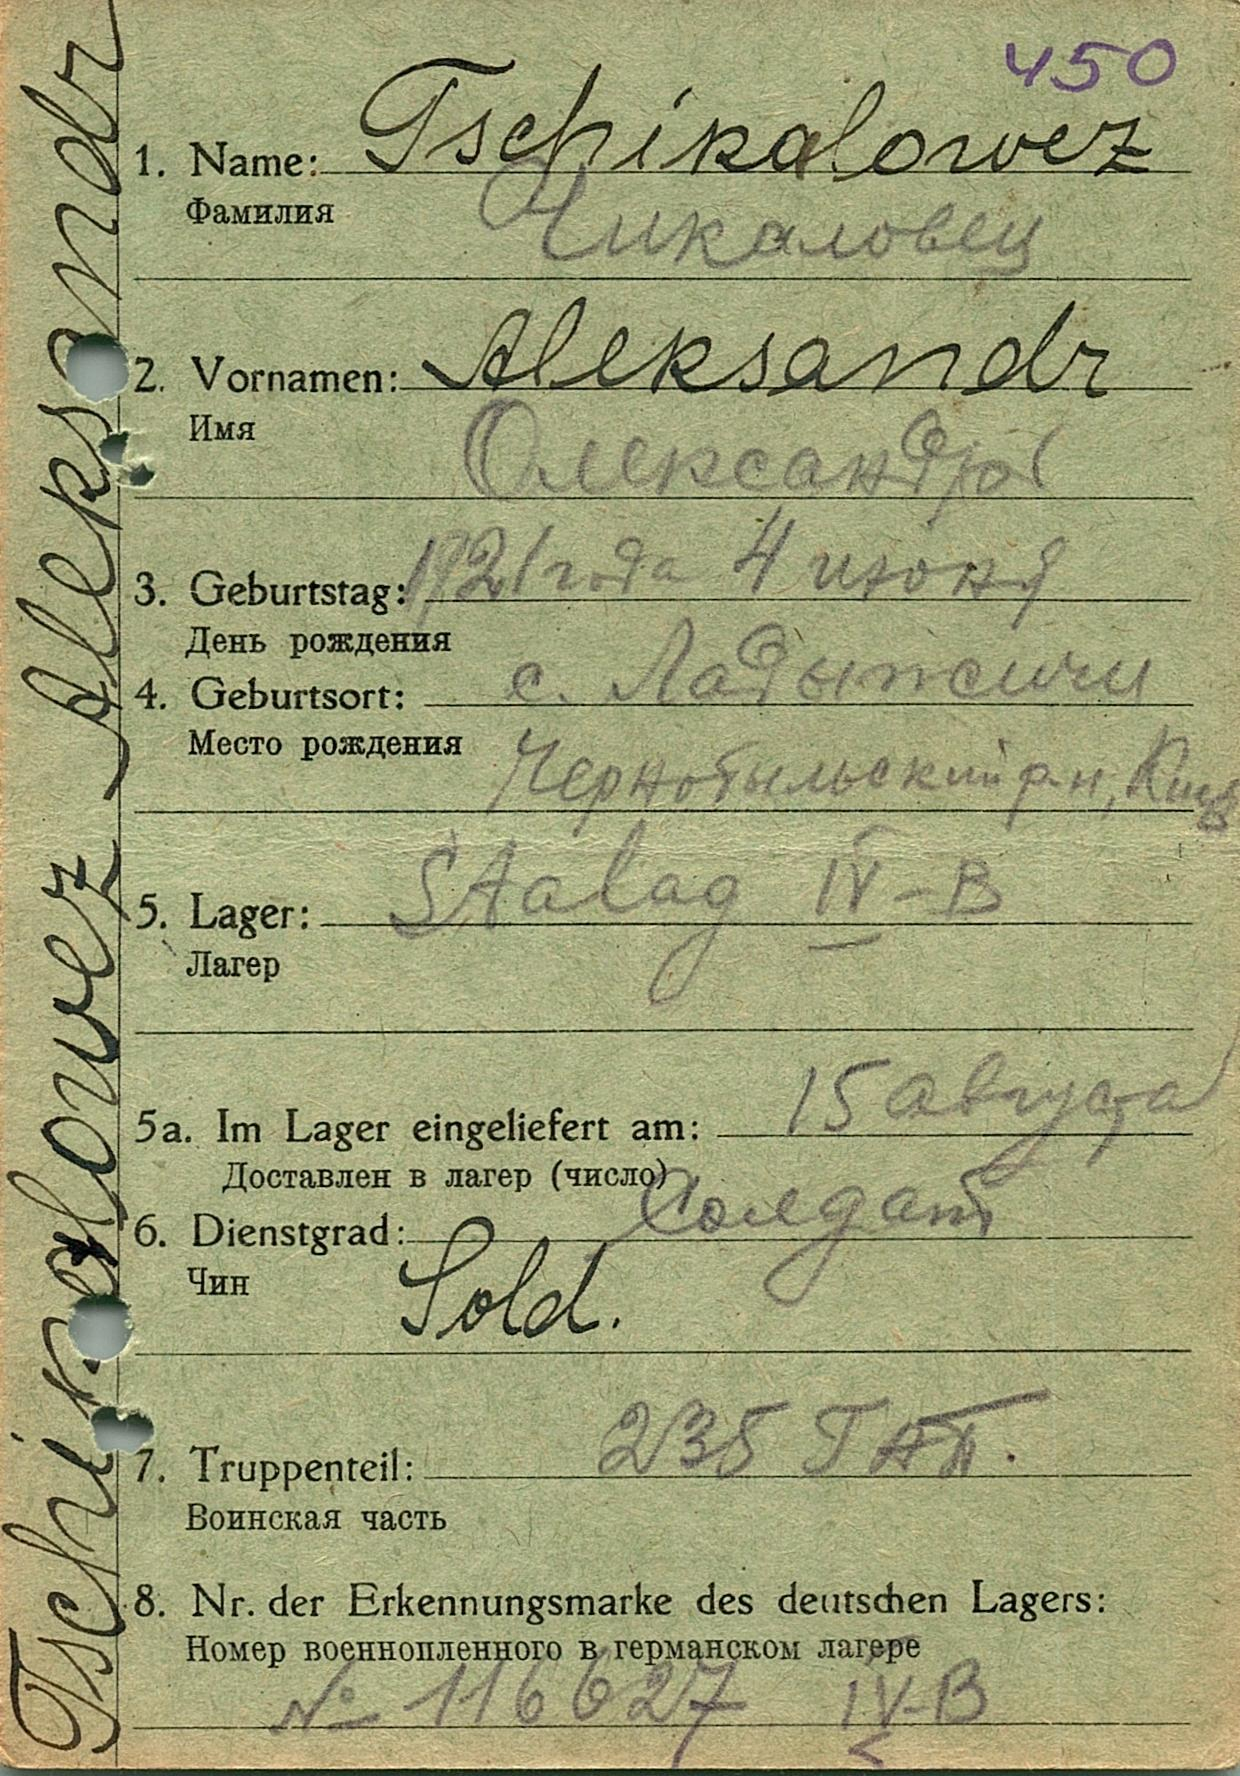 450
1. Name: Tschikalowez
Фамилия Чикаловец
2. Vornamen: Aleksandr
Имя Олександр
3. Geburtstag: 1921 года 4 июня
День рождения
4. Geburtsort: с. Ладыжичи
Место рождения Чернобыльский р-н, Киев
5. Lager: Stalag IV-B
Лагер
5a. Im Lager eingeliefert am: 15 августа
Доставлен в лагер (число)
6. Dienstgrad: Солдат
Чин Sold.
7. Truppenteil: 235 ГАП.
Воинская часть
8. Nr. der Erkennungsmarke des deutschen Lagers:
Номер военнопленного в германском лагере
№ 116627 IV-B
Tschikalowez Aleksandr